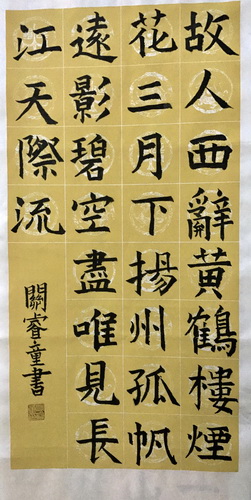 故人西辭黃鶴樓煙
花三月下揚州孤帆
遠影碧空盡唯見長
江天際流
關睿童書